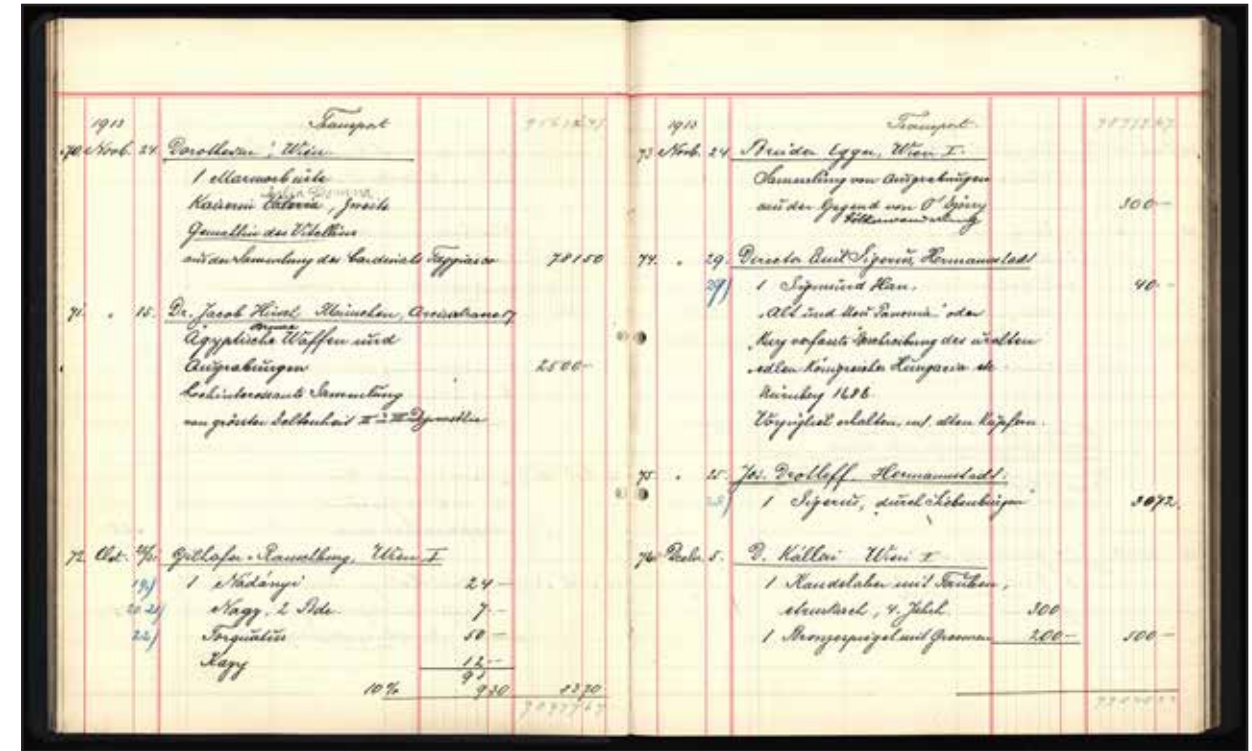 1913 Transport
70. Novb. 24 Dorotheum, Wien.
1 Marmorbüste
Julia Domna
Kaiserin Valeria, zweite
Gemahlin des Vitellius
aus der Sammlung des Cardinals 78150
71. " 15. Dr. Jacob Hirsch München, Arcisstrasse 17
Ägyptische Waffen und
Ausgrabungen 2500-
hochinteressante Sammlung
von grösster Seltenheit II - III
72. Okt. Gilhofer & Ranschburg, Wien I
19) 1 Nadányi 24-
20 21) Nagy, 2 Bde. 7-
22) Torquatus 50-
12-
93
10% 930 8370
1913 Transport
73 Novb. 24 Brüder Egger, Wien I.
Sammlung von Ausgrabungen
aus der Gegend von O' Szöny 300-
Völkerwanderung
74. " 29. Director Emil Sigerus, Hermannstadt
1 Sigmund Han. 40-
Alt und Neu Panonia" oder
Kurz verfasste Beschreibung des uralten
edlen Königreiches Hungaria etc
Nürnberg 1686.
Vorzüglich erhalten, mit allen Kupfern.
75 " 25 Jos. Drotleff, Hermannstadt.
1 Sigerus, durch Siebenbürgen" 3072.
76 Decbr. 5. D. Kallai Wien I
1 Kandelaber mit Tauben,
etruskisch, 4. Jahrh. 300
1 Bronzespiegel mit 200- 500-